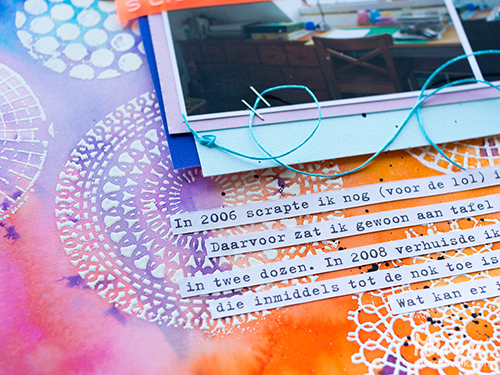 In 2006 scrapte ik nog (voor de lol) i
Daarvoor zat ik gewoon aan tafel
in twee dozen. In 2008 verhuisde ik
die inmiddels tot de nok toe is
Wat kan er i